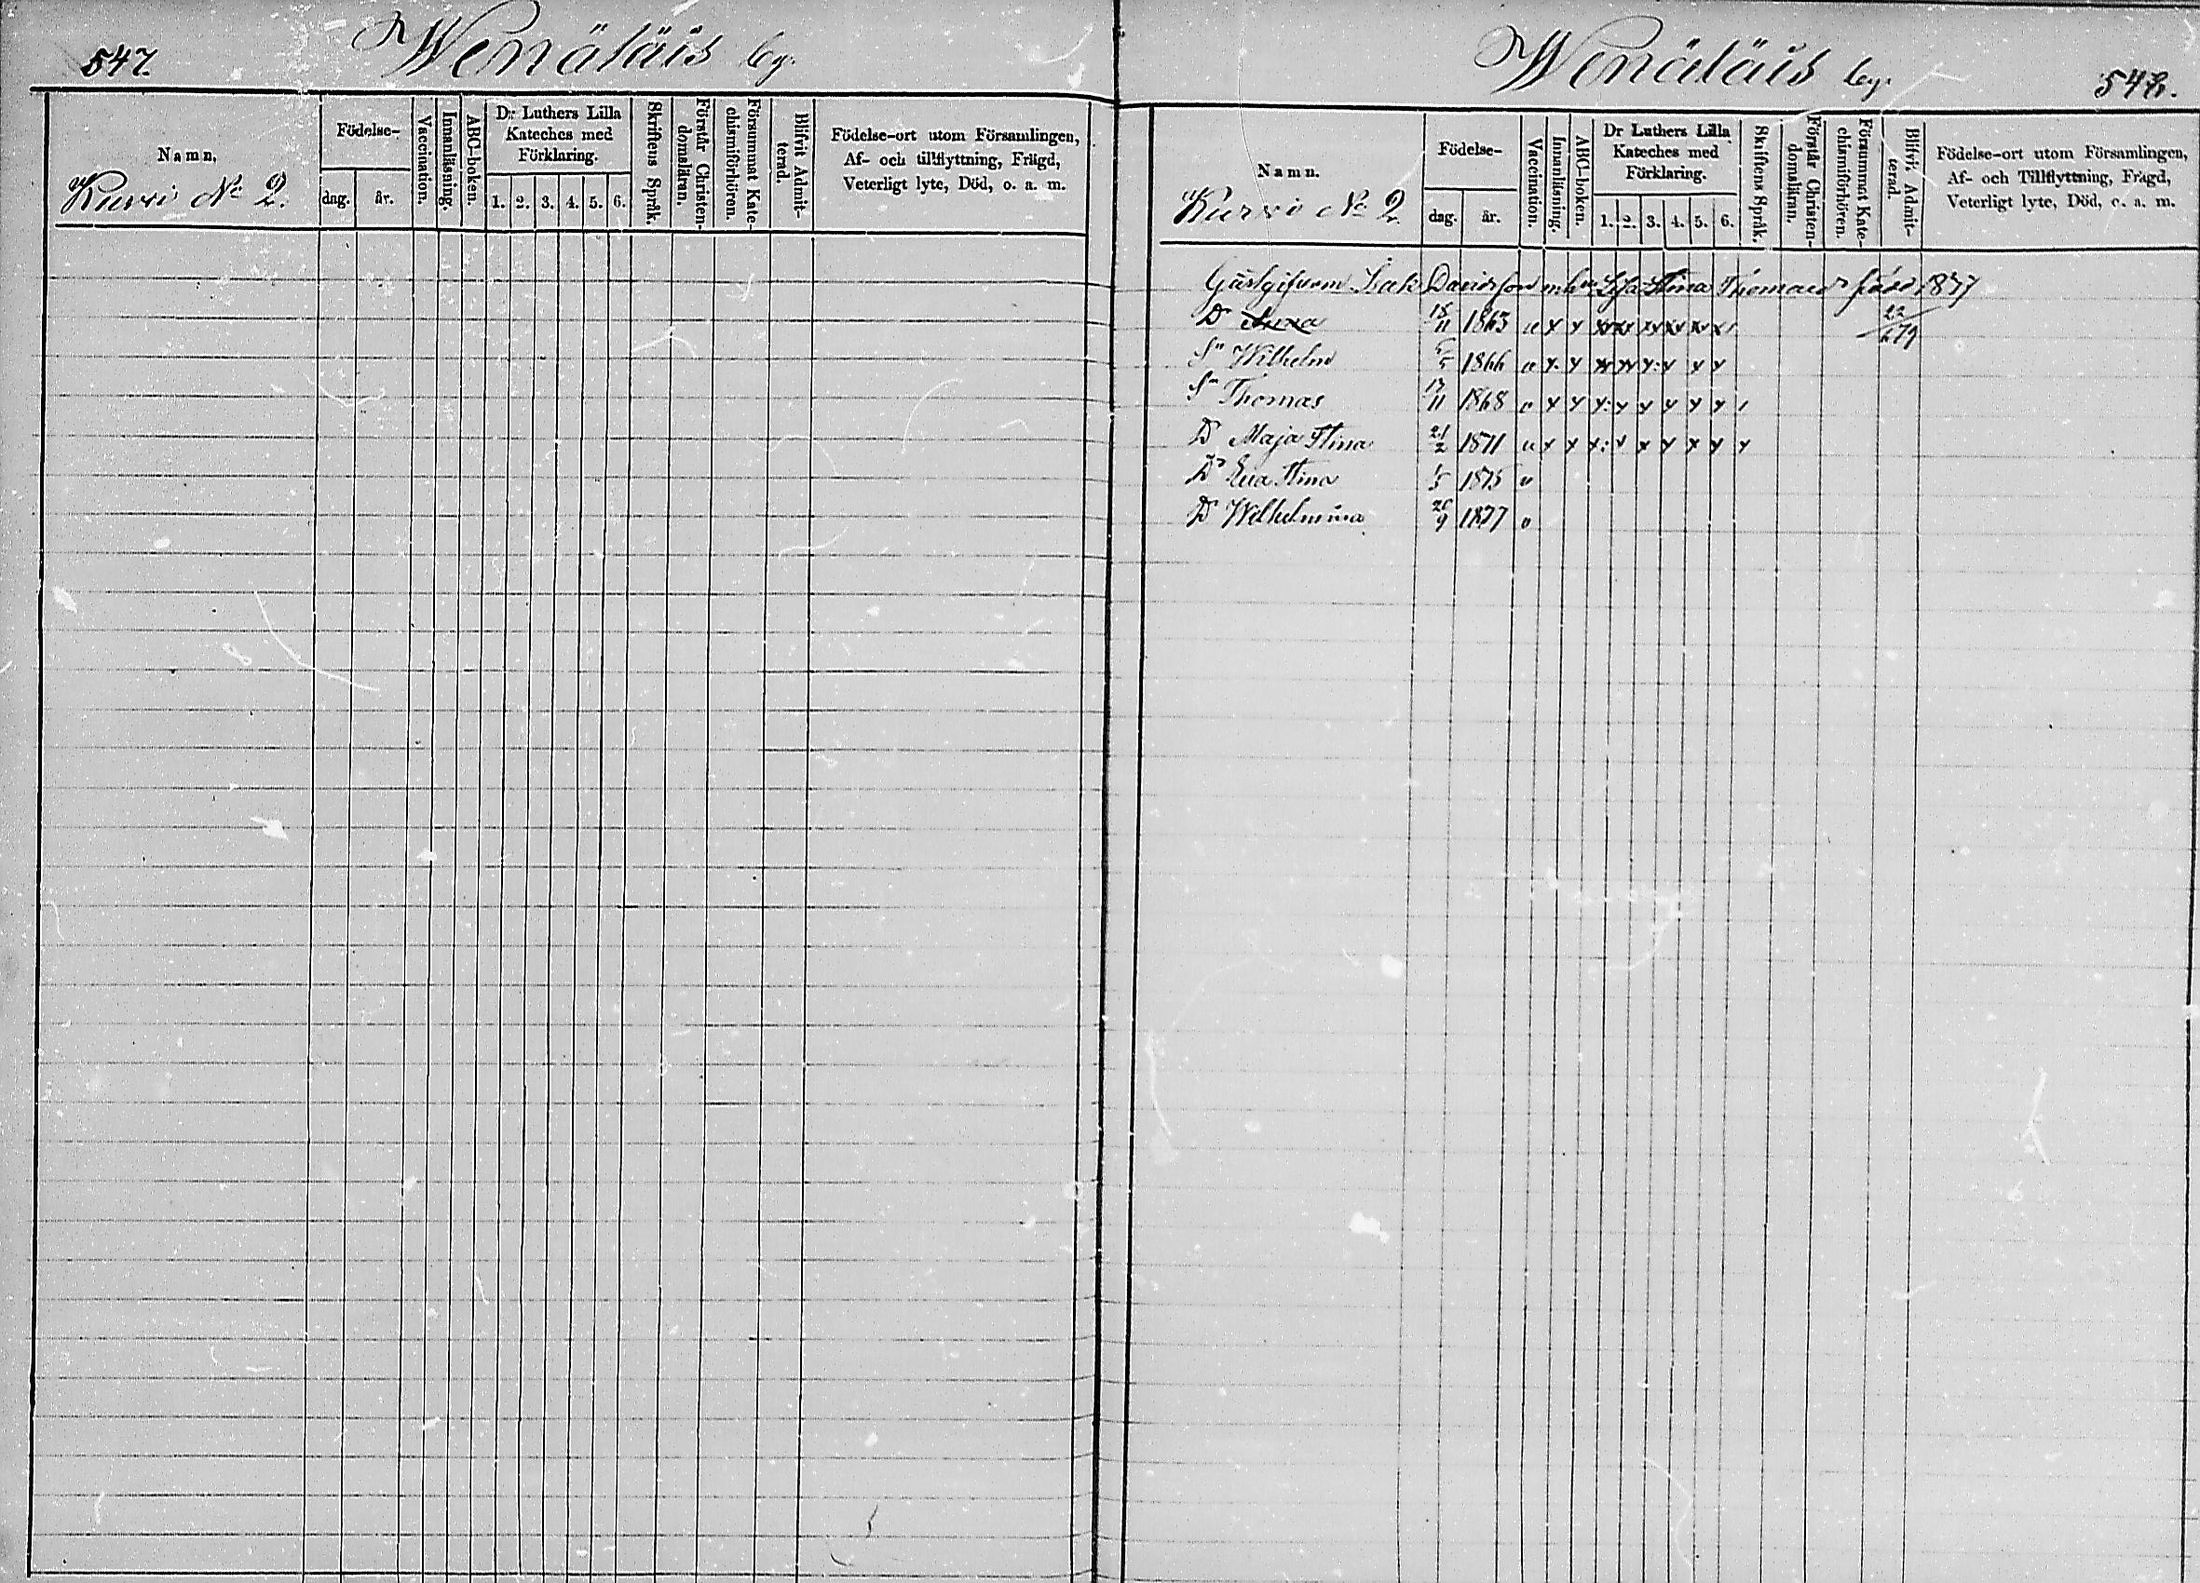 547.
Wenäläis by.
Namn.
Kurvi No 2.
Födelse-
dag. år.
Vaccination.
Innanläsning.
ABC-boken.
Dr Luthers Lilla
Kateches med
Förklaring.
1. 2. 3. 4. 5. 6.
Skriftens Språk.
Förstår Christen-
domsläran.
Försummat Kate-
chismiförhören.
Blifvit Admit-
terad.
Födelse-ort utom Församlingen,
Af- och tillflyttning, Frägd,
Veterligt lyte, Död, o. a. m.
Wenäläis by.
548.
Namn.
Kurvi No 2
Födelse-
dag. år.
Vaccination.
Innanläsning.
ABC-boken.
Dr Luthers Lilla
Kateches med
Förklaring.
1. 2. 3. 4. 5. 6.
Skriftens Språk.
Förstår Christen-
domsläran.
Försummat Kate-
chismiförhören.
Blifvit Admit-
terad.
Födelse-ort utom Församlingen,
Af- och Tillflyttning, Frägd,
Veterligt lyte, Död, o. a. m.
Gästgifvaren Isak Davidsson Lisa Stina Thomasdr 1877
Dr Anna 18/11 1863 v x x xx xx xx xx xx x 22/6 79
Sn Wilhelm 1866 v x x xx xx x x x x
Sn Thomas 17/11 1868 v x x x x x x x x
Dr Maja Stina 21/2 1871 v x x x x x x x x x
Dr Eva Stina 1/5 1875 v
Dr Wilhelmina 20/9 1877 v